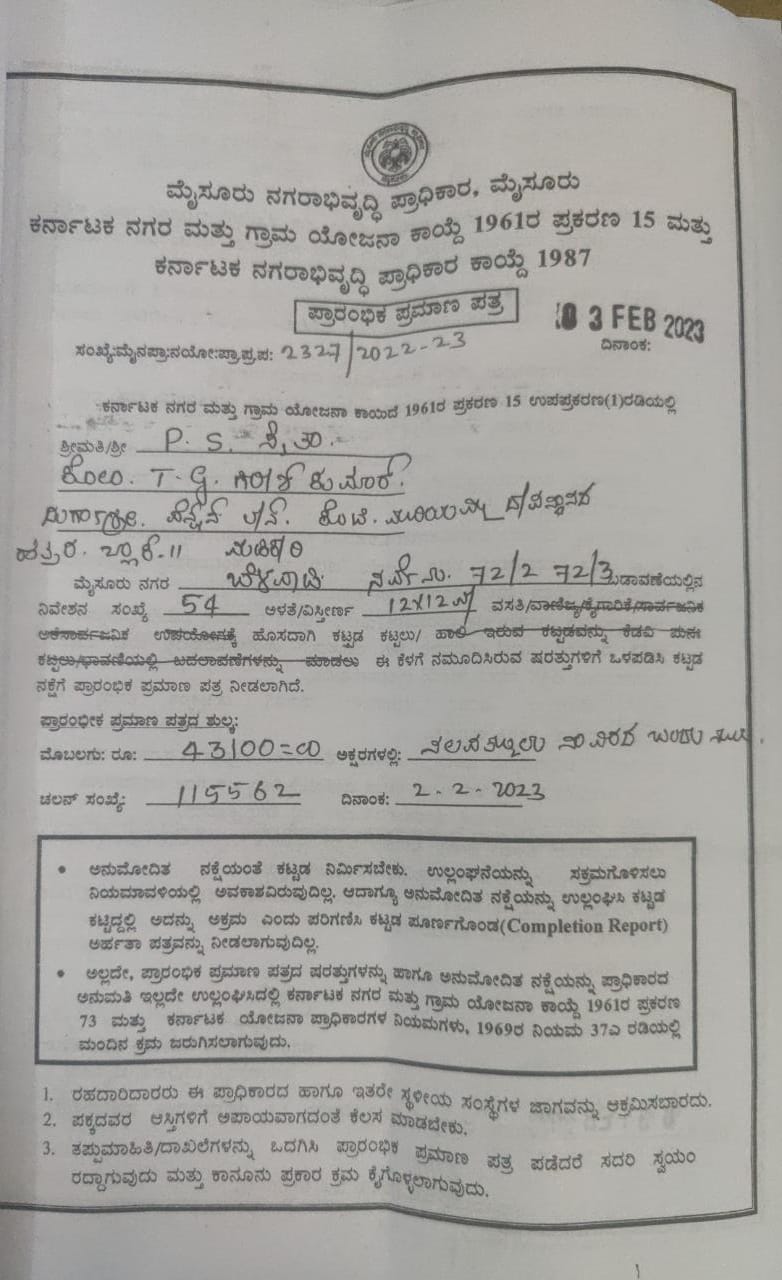 ಮೈಸೂರು ನಗರಾಭಿವೃದ್ಧಿ ಪ್ರಾಧಿಕಾರ, ಮೈಸೂರು
ಕರ್ನಾಟಕ ನಗರ ಮತ್ತು ಗ್ರಾಮ ಯೋಜನಾ ಕಾಯ್ದೆ 1961ರ ಪ್ರಕರಣ 15 ಮತ್ತು
ಕರ್ನಾಟಕ ನಗರಾಭಿವೃದ್ಧಿ ಪ್ರಾಧಿಕಾರ ಕಾಯ್ದೆ 1987
ಪ್ರಾರಂಭಿಕ ಪ್ರಮಾಣ ಪತ್ರ
03 FEB 2023
ಸಂಖ್ಯೆ:ಮೈನಪ್ರಾ:ನಯೋ:ಪ್ರಾ.ಪ್ರ.ಪ: 2327/2022-23 ದಿನಾಂಕ:
ಕರ್ನಾಟಕ ನಗರ ಮತ್ತು ಗ್ರಾಮ ಯೋಜನಾ ಕಾಯಿದೆ 1961ರ ಪ್ರಕರಣ 15 ಉಪಪ್ರಕರಣ(1)ರಡಿಯಲ್ಲಿ
ಶ್ರೀಮತಿ/ಶ್ರೀ P. S.
ಕೋಂ. T. G. ಗಿರೀಶ್ ಕುಮಾರ್.
ಹತ್ತಿರ. ಬ್ಲಾಕ್-11 ಮಡಿಕೇರಿ
ಮೈಸೂರು ನಗರ ಬೆಳವಾಡಿ ಸರ್ವೆ ನಂ. 72/2 72/3 ಬಡಾವಣೆಯಲ್ಲಿನ
ನಿವೇಶನ ಸಂಖ್ಯೆ 54 ಅಳತೆ/ವಿಸ್ತೀರ್ಣ 12x12 ಮೀ ವಸತಿ/ವಾಣಿಜ್ಯ/ಕೈಗಾರಿಕೆ/ಸಾರ್ವಜನಿಕ
ಅರೆಸಾರ್ವಜನಿಕ ಉಪಯೋಗಕ್ಕೆ ಹೊಸದಾಗಿ ಕಟ್ಟಡ ಕಟ್ಟಲು/ ಹಾಲಿ ಇರುವ ಕಟ್ಟಡವನ್ನು ಕೆಡವಿ ಪುನಃ
ಕಟ್ಟಲು/ಭಾವಣಿಯಲ್ಲಿ ಬದಲಾವಣೆಗಳನ್ನು ಮಾಡಲು ಈ ಕೆಳಗೆ ನಮೂದಿಸಿರುವ ಷರತ್ತುಗಳಿಗೆ ಒಳಪಡಿಸಿ ಕಟ್ಟಡ
ನಕ್ಷೆಗೆ ಪ್ರಾರಂಭಿಕ ಪ್ರಮಾಣ ಪತ್ರ ನೀಡಲಾಗಿದೆ.
ಪ್ರಾರಂಭೀಕ ಪ್ರಮಾಣ ಪತ್ರದ ಶುಲ್ಕ:
ಮೊಬಲಗು: ರೂ: 43100=00 ಅಕ್ಷರಗಳಲ್ಲಿ: ನಲವತ್ಮೂರು ಸಾವಿರದ ಒಂದು ನೂರು.
ಚಲನ್ ಸಂಖ್ಯೆ: 115562 ದಿನಾಂಕ: 2-2-2023
• ಅನುಮೋದಿತ ನಕ್ಷೆಯಂತೆ ಕಟ್ಟಡ ನಿರ್ಮಿಸಬೇಕು. ಉಲ್ಲಂಘನೆಯನ್ನು ಸಕ್ರಮಗೊಳಿಸಲು
ನಿಯಮಾವಳಿಯಲ್ಲಿ ಅವಕಾಶವಿರುವುದಿಲ್ಲ. ಆದಾಗ್ಯೂ ಅನುಮೋದಿತ ನಕ್ಷೆಯನ್ನು ಉಲ್ಲಂಘಿಸಿ ಕಟ್ಟಡ
ಕಟ್ಟಿದ್ದಲ್ಲಿ ಅದನ್ನು ಅಕ್ರಮ ಎಂದು ಪರಿಗಣಿಸಿ ಕಟ್ಟಡ ಪೂರ್ಣಗೊಂಡ(Completion Report)
ಅರ್ಹತಾ ಪತ್ರವನ್ನು ನೀಡಲಾಗುವುದಿಲ್ಲ.
• ಅಲ್ಲದೇ, ಪ್ರಾರಂಭಿಕ ಪ್ರಮಾಣ ಪತ್ರದ ಷರತ್ತುಗಳನ್ನು ಹಾಗೂ ಅನುಮೋದಿತ ನಕ್ಷೆಯನ್ನು ಪ್ರಾಧಿಕಾರದ
ಅನುಮತಿ ಇಲ್ಲದೇ ಉಲ್ಲಂಘಿಸಿದಲ್ಲಿ ಕರ್ನಾಟಕ ನಗರ ಮತ್ತು ಗ್ರಾಮ ಯೋಜನಾ ಕಾಯ್ದೆ 1961ರ ಪ್ರಕರಣ
73 ಮತ್ತು ಕರ್ನಾಟಕ ಯೋಜನಾ ಪ್ರಾಧಿಕಾರಗಳ ನಿಯಮಗಳು, 1969ರ ನಿಯಮ 37ಎ ರಡಿಯಲ್ಲಿ
ಮಂದಿನ ಕ್ರಮ ಜರುಗಿಸಲಾಗುವುದು.
1. ರಹದಾರಿದಾರರು ಈ ಪ್ರಾಧಿಕಾರದ ಹಾಗೂ ಇತರೇ ಸ್ಥಳೀಯ ಸಂಸ್ಥೆಗಳ ಜಾಗವನ್ನು ಆಕ್ರಮಿಸಬಾರದು.
2. ಪಕ್ಕದವರ ಆಸ್ತಿಗಳಿಗೆ ಅಪಾಯವಾಗದಂತೆ ಕೆಲಸ ಮಾಡಬೇಕು.
3. ತಪ್ಪುಮಾಹಿತಿ/ದಾಖಲೆಗಳನ್ನು ಒದಗಿಸಿ ಪ್ರಾರಂಭಿಕ ಪ್ರಮಾಣ ಪತ್ರ ಪಡೆದರೆ ಸದರಿ ಸ್ವಯಂ
ರದ್ದಾಗುವುದು ಮತ್ತು ಕಾನೂನು ಪ್ರಕಾರ ಕ್ರಮ ಕೈಗೊಳ್ಳಲಾಗುವುದು.